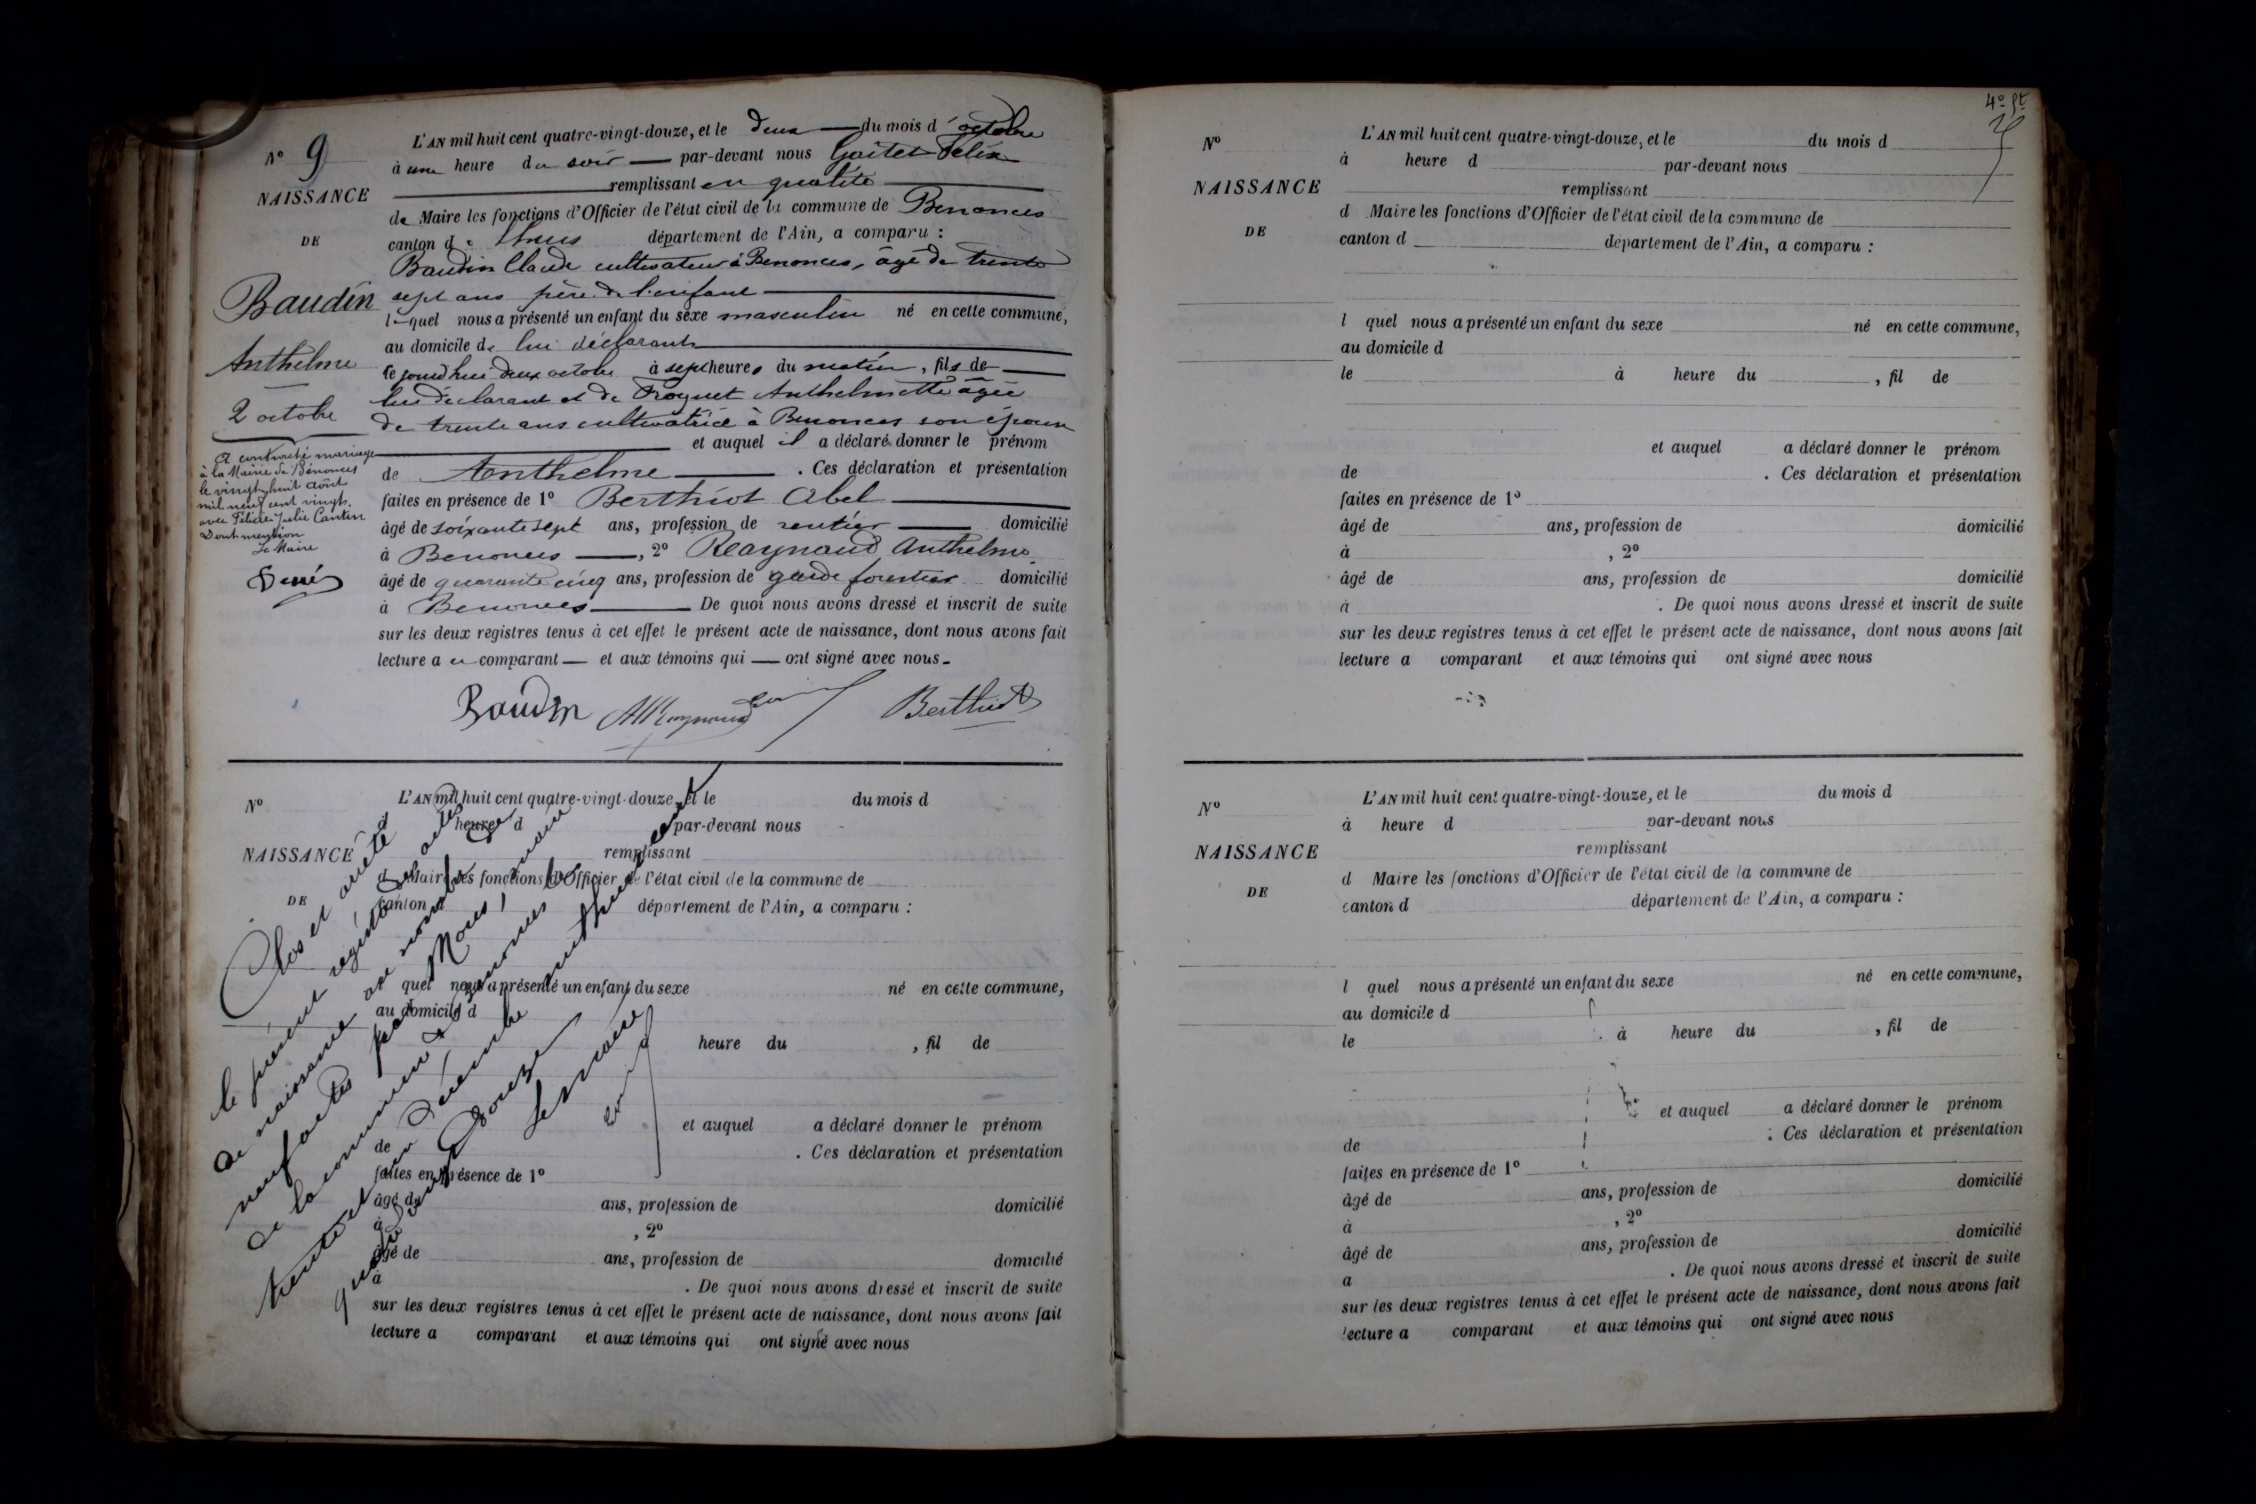 N° 9
NAISSANCE
DE
Baudin
Anthelme
2 octobre
A contracté mariage
à la Mairie de Bénonces
le vingt-huit août
mil neuf cent vingt
avec Félicie Julie Cantin
Dont mention
Le Maire
L'AN mil huit cent quatre-vingt-douze, et le deux du mois d'octobre
à une heure du soir par-devant nous Gaitet Félix
remplissant en qualité
de Maire les fonctions d'Officier de l'état civil de la commune de Benonces
canton de Lhuis département de l'Ain, a comparu :
Baudin Claude cultivateur à Benonces, âgé de trente
sept ans père de l'enfant
lequel nous a présenté un enfant du sexe masculin né en cette commune,
au domicile de lui déclarant
le jourd'hui deux octobre à sept heures du matin, fils de
lui déclarant et de Anthelmette âgée
de trente ans cultivatrice à Benonces son épouse
et auquel il a déclaré donner le prénom
de Anthelme . Ces déclaration et présentation
faites en présence de 1° Berthiot Abel
âgé de soixante sept ans, profession de rentier domicilié
à Benonces , 2° Reaynaud Anthelme
âgé de quarante cinq ans, profession de garde forestier domicilié
à Benonces De quoi nous avons dressé et inscrit de suite
sur les deux registres tenus à cet effet le présent acte de naissance, dont nous avons fait
lecture au comparant et aux témoins qui ont signé avec nous
Baudin Berthiot
N°
NAISSANCE
DE
L'AN mil huit cent quatre-vingt-douze, et le du mois d
à heure d par-devant nous
remplissant
d Maire les fonctions d'Officier de l'état civil de la commune de
canton département de l'Ain, a comparu :
quel nous a présenté un enfant du sexe né en cette commune,
au domicile d
heure du , fil de
et auquel a déclaré donner le prénom
de . Ces déclaration et présentation
faites en présence de 1°
âgé de ans, profession de domicilié
à , 2°
âgé de ans, profession de domicilié
à . De quoi nous avons dressé et inscrit de suite
sur les deux registres tenus à cet effet le présent acte de naissance, dont nous avons fait
lecture a comparant et aux témoins qui ont signé avec nous
Clos et arrêté
le présent registre des actes
de naissance au nombre de
neuf actes par Nous, maire
de la commune de Benonces le
trente et un Décembre mil huit cent
quatre vingt douze
Le maire
4° ft
N°
NAISSANCE
DE
L'AN mil huit cent quatre-vingt-douze, et le du mois d
à heure d par-devant nous
remplissant
d Maire les fonctions d'Officier de l'état civil de la commune de
canton d département de l'Ain, a comparu :
l quel nous a présenté un enfant du sexe né en cette commune,
au domicile d
le à heure du , fil de
et auquel a déclaré donner le prénom
de . Ces déclaration et présentation
faites en présence de 1°
âgé de ans, profession de domicilié
à , 2°
âgé de ans, profession de domicilié
à . De quoi nous avons dressé et inscrit de suite
sur les deux registres tenus à cet effet le présent acte de naissance, dont nous avons fait
lecture a comparant et aux témoins qui ont signé avec nous
N°
NAISSANCE
DE
L'AN mil huit cent quatre-vingt-douze, et le du mois d
à heure d par-devant nous
remplissant
d Maire les fonctions d'Officier de l'état civil de la commune de
canton d département de l'Ain, a comparu :
l quel nous a présenté un enfant du sexe né en cette commune,
au domicile d
le à heure du , fil de
et auquel a déclaré donner le prénom
de . Ces déclaration et présentation
faites en présence de 1°
âgé de ans, profession de domicilié
à , 2°
âgé de ans, profession de domicilié
a . De quoi nous avons dressé et inscrit de suite
sur les deux registres tenus à cet effet le présent acte de naissance, dont nous avons fait
lecture a comparant et aux témoins qui ont signé avec nous